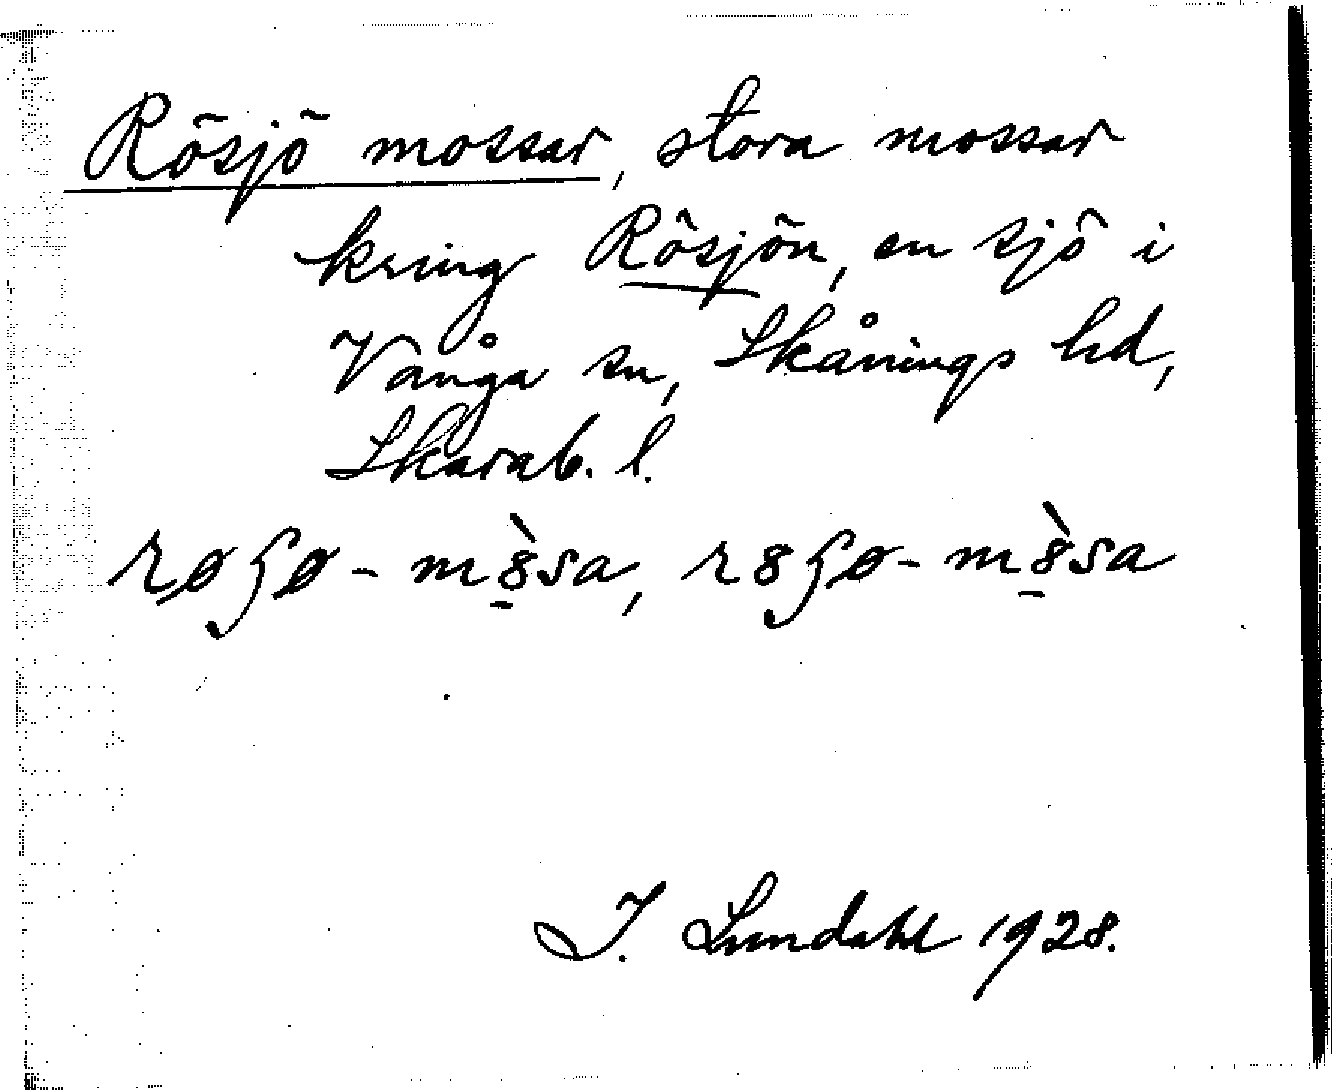 Rösjö mossar, stora mossar
kring Rösjön, en sjö i
Vånga sn, Skånings hd,
Skarab. l.
I. Lundahl 1928.